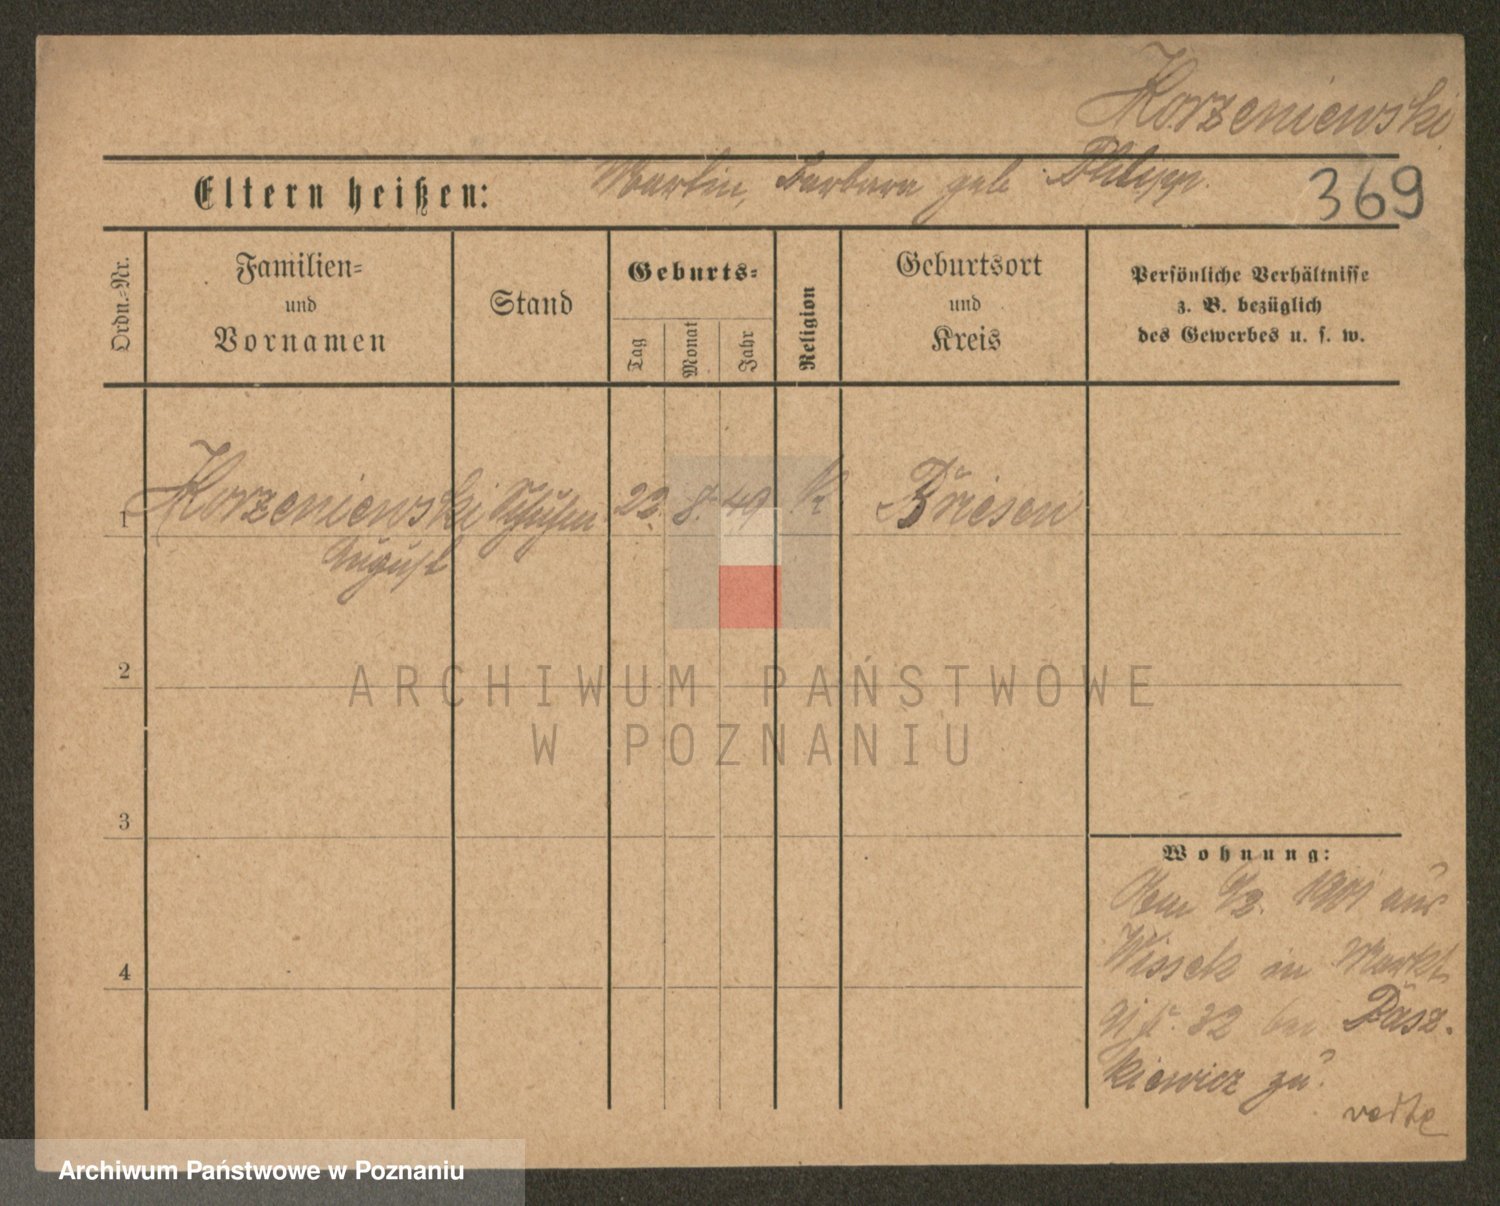 Korzeniewski
Eltern heißen: Martin, Barbara geb. Philipp.
369
Ordn.-Nr.
Familien-
und
Vornamen
Stand
Geburts-
Tag
Monat
Jahr
Religion
Geburtsort
und
Kreis
Persönliche Verhältnisse
z. B. bezüglich
des Gewerbes u. s. w.
1 Korzeniewski 22. 8. 49 K Briesen
August
2
3
4
Wohnung:
1901 aus
Wissek in Markt
32 bei Pasz-
kiewicz zu.
ARCHIWUM PAŃSTWOWE
W POZNANIU
Archiwum Państwowe w Poznaniu